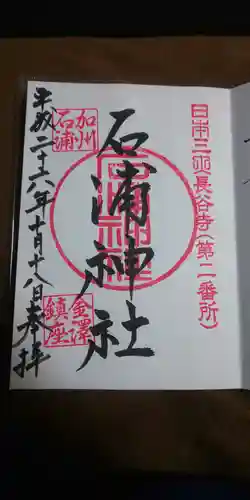 日本三所長谷寺(第二番所)
奉拝
石浦神社
加州
石浦
石浦神社
金澤
鎮座
平成二十六年十月十八日奉拝